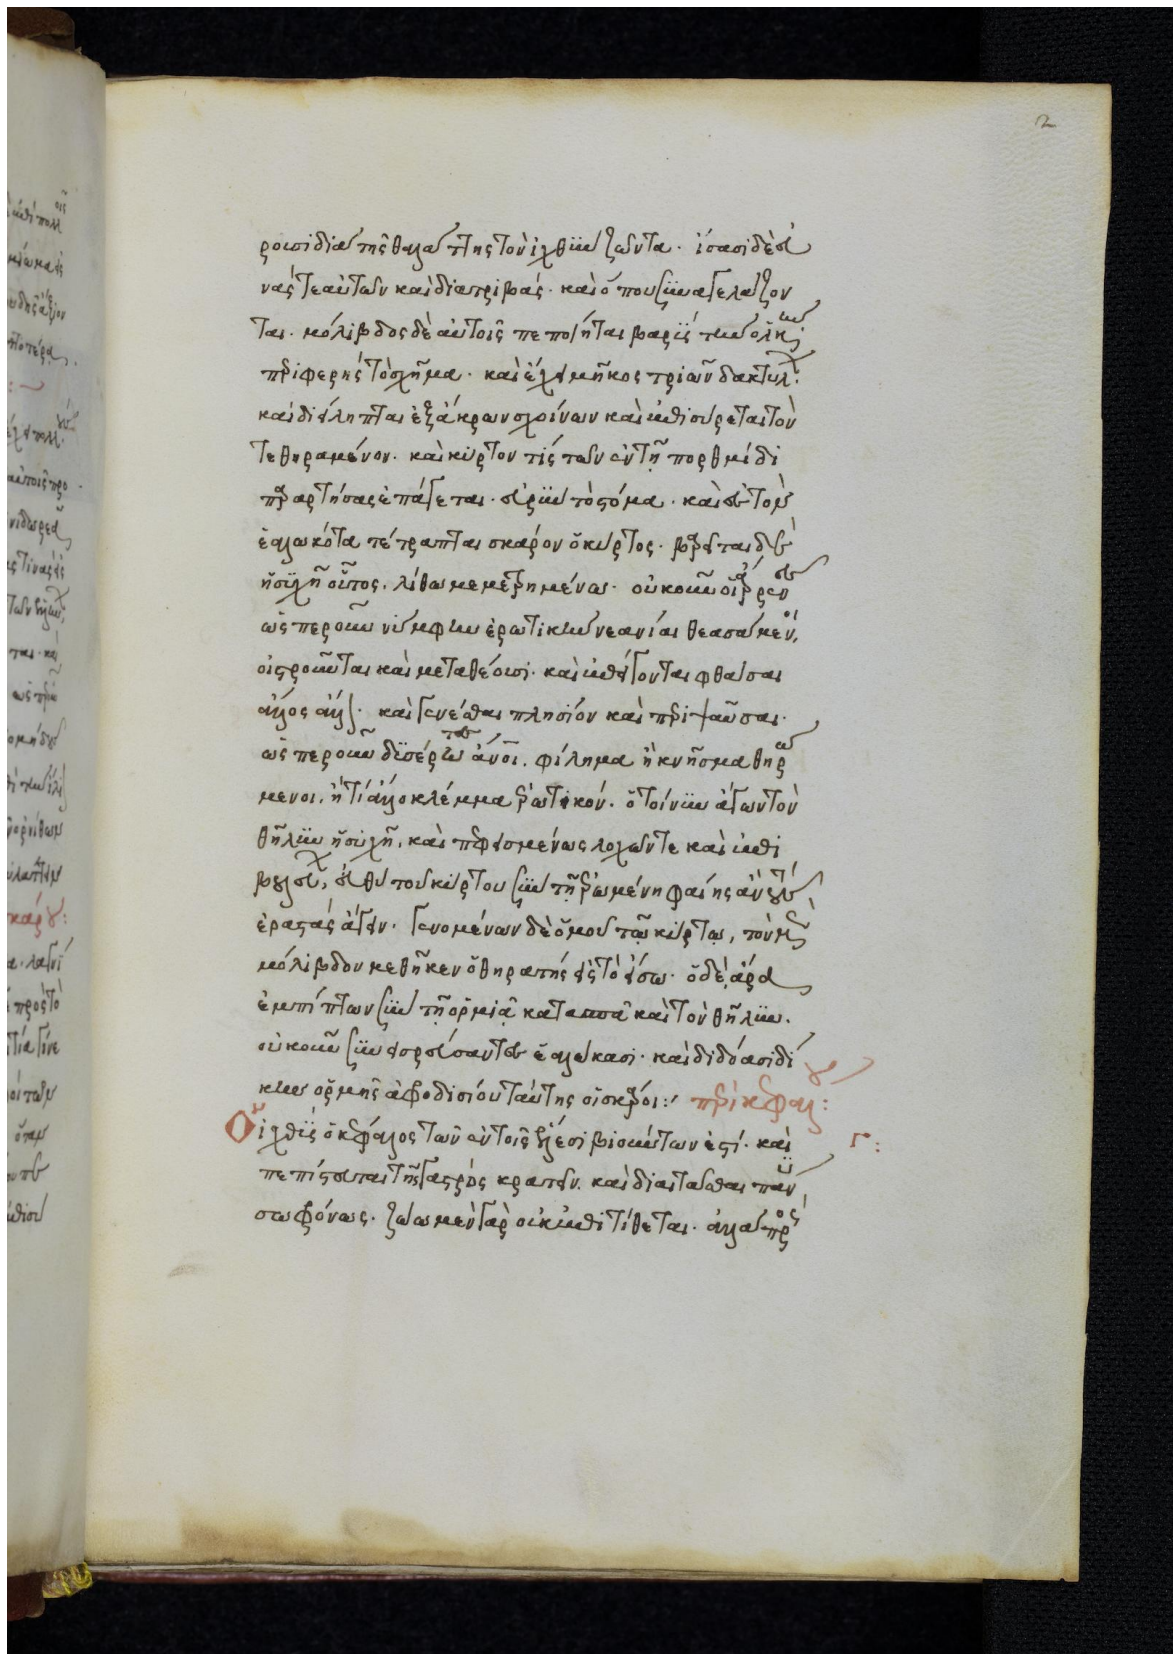 ρουσι διὰ τῆς θαλάττης τὸν ἰχθὺν ζῶντα. ἴσασι δὲ εὐ
νάς τε αὐτῶν καὶ διατριβάς. καὶ ὅπου συναγελάζον
ται. μόλιβδος δὲ αὐτοῖς πεποίηται βαρὺς τὴν ὁλκὴν
περιφερὴς τὸ σχῆμα. καὶ ἔχει μῆκος τριῶν δακτύλων:
καὶ διείληπται ἐξ ἄκρων σχοίνων καὶ ἐπισύρεται τὸν
τεθηραμένον. καὶ κύρτον τίς τῶν ἐν τῇ πορθμίδι
παραρτήσας ἐπάγεται. εὐρὺν τὸ στόμα. καὶ ἐς τὸν
ἑαλωκότα τέτραπται σκάρον ὁ κύρτος. βαρεῖται δὲ
ἡσυχῇ οὗτος. λίθω μεμετρημένω. οὐκοῦν οἱ ἄρρενες
ὥσπερ οὖν νύμφην ἐρωτικὴν νεανίαι θεασάμενοι,
οἰστροῦνται καὶ μεταθέουσι. καὶ ἐπείγονται φθάσαι
ἄλλος ἄλλον. καὶ γενέσθαι πλησίον καὶ περιψαῦσαι.
ὥσπερ οὖν δυσέρωτες ἄνθρωποι. φίλημα ἢ κνῆσμα θηρώ
μενοι. ἤ τι ἄλλο κλέμμα ἐρωτικόν. ὁ τοίνυν ἄγων τὸν
θῆλυν ἡσυχῇ. καὶ πεφεισμένως λοχῶν τε καὶ ἐπι
βουλεύων, εὐθὺ τοῦ κύρτου σὺν τῇ ἐρωμένη φαίης ἂν τοὺς
ἐραστὰς ἄγειν. γενομένων δὲ ὁμοῦ τῷ κύρτῳ, τὸν μὲν
μόλιβδον μεθῆκεν ὁ θηρατής εἰς τὸ εἴσω. ὁ δὲ ἄρα
ἐμπίπτων σὺν τῇ ὁρμιᾷ κατασπᾶ καὶ τὸν θῆλυν.
οὐκοῦν συνεισρεύσαντες ἑαλώκασι. καὶ διδόασι δί
κην ὁρμῆς ἀφροδισίου ταύτης οἱ σκάροι: περὶ κεφάλου:
Ὁ ἰχθὺς ὁ κέφαλος τῶν ἐν τοῖς ἕλεσι βιούντων ἐστί. καὶ Γ:
πεπίστευται τῆς γαστρὸς κρατεῖν. καὶ διαιτᾶσθαι πάνυ
σωφρόνως. ζώω μὲν γὰρ οὐκ ἐπιτίθεται. ἀλλὰ πρὸς